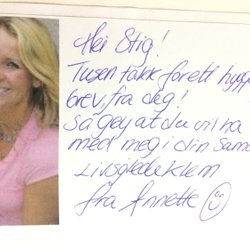 Hei Stig!
Tusen takk for ett hygg
brev, fra deg!
Så gøy at du vil ha
med meg i din Sam
Livsgledeklem
fra Annette